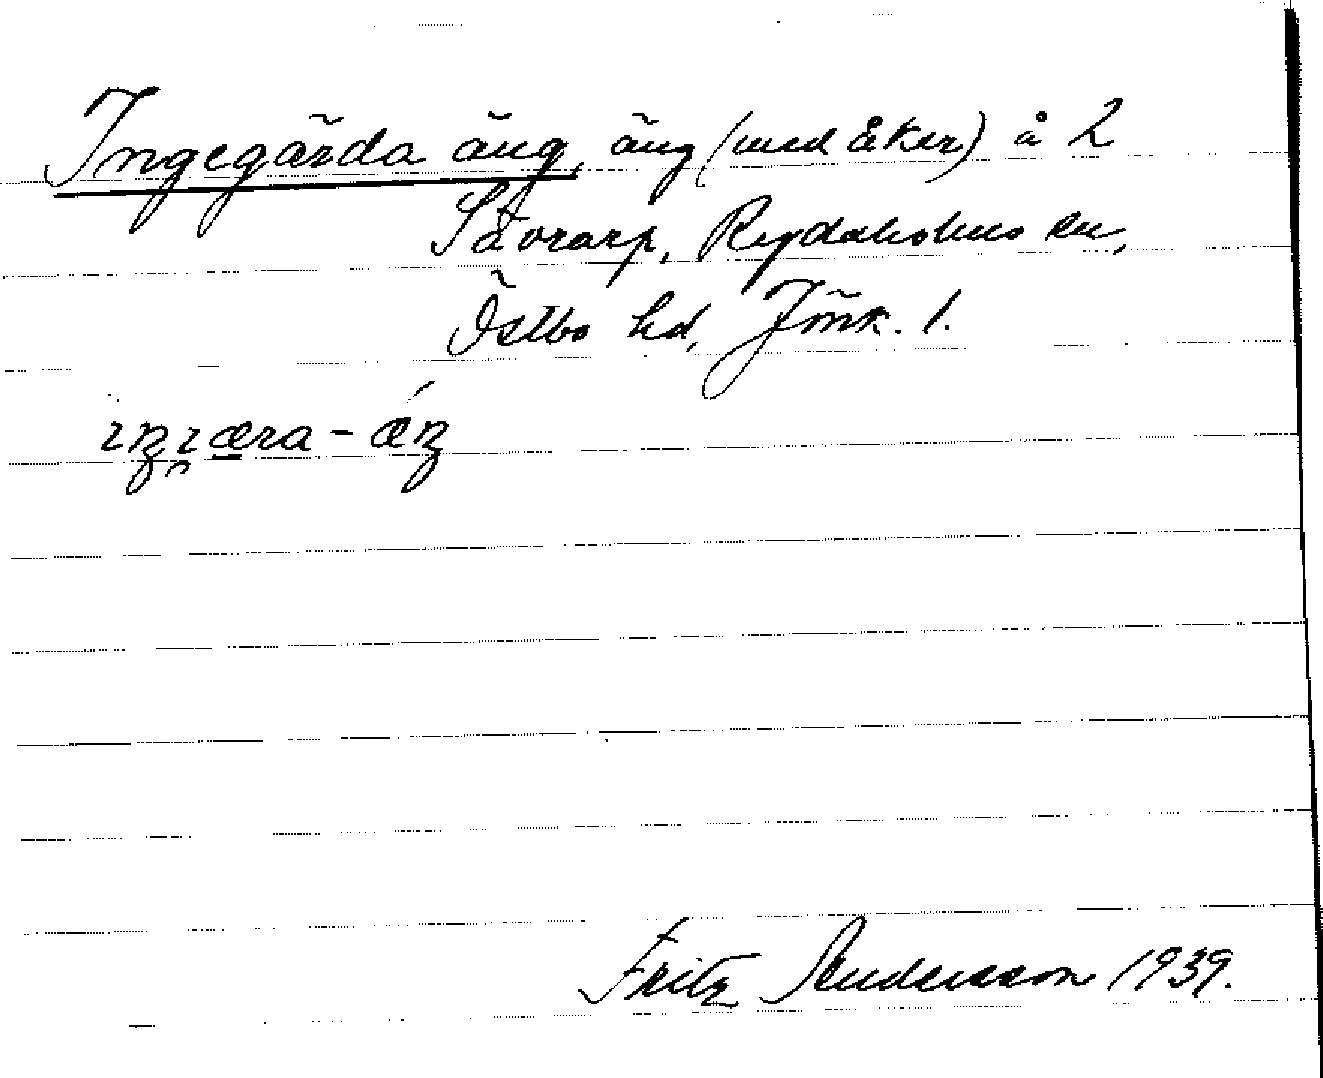 Ingegärda äng, äng (med åker) å 2
Stavrarp, Rydaholms sn,
Östbo hd, Jönk. l.
ɪŋɪæra-ǽŋ
Fritz Andersson 1939.